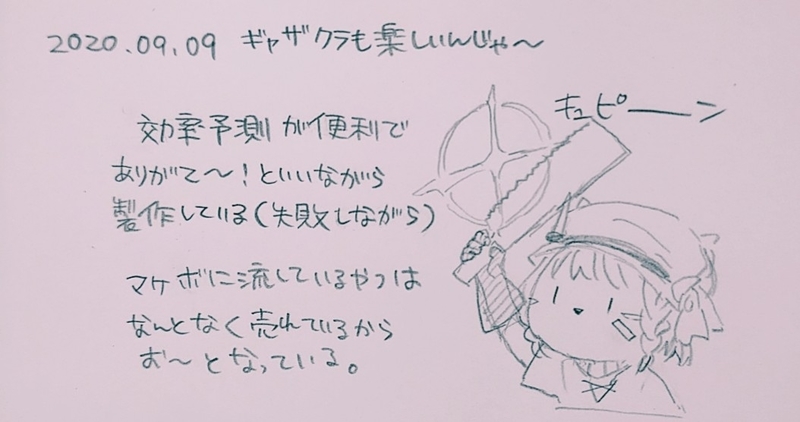 2020.09.09 ギャザクラも楽しいんじゃ〜
キュピーーン
効率予測が便利で
ありがて〜！といいながら
製作している(失敗しながら)
マケボに流しているやつは
なんとなく売れているから
お〜となっている。